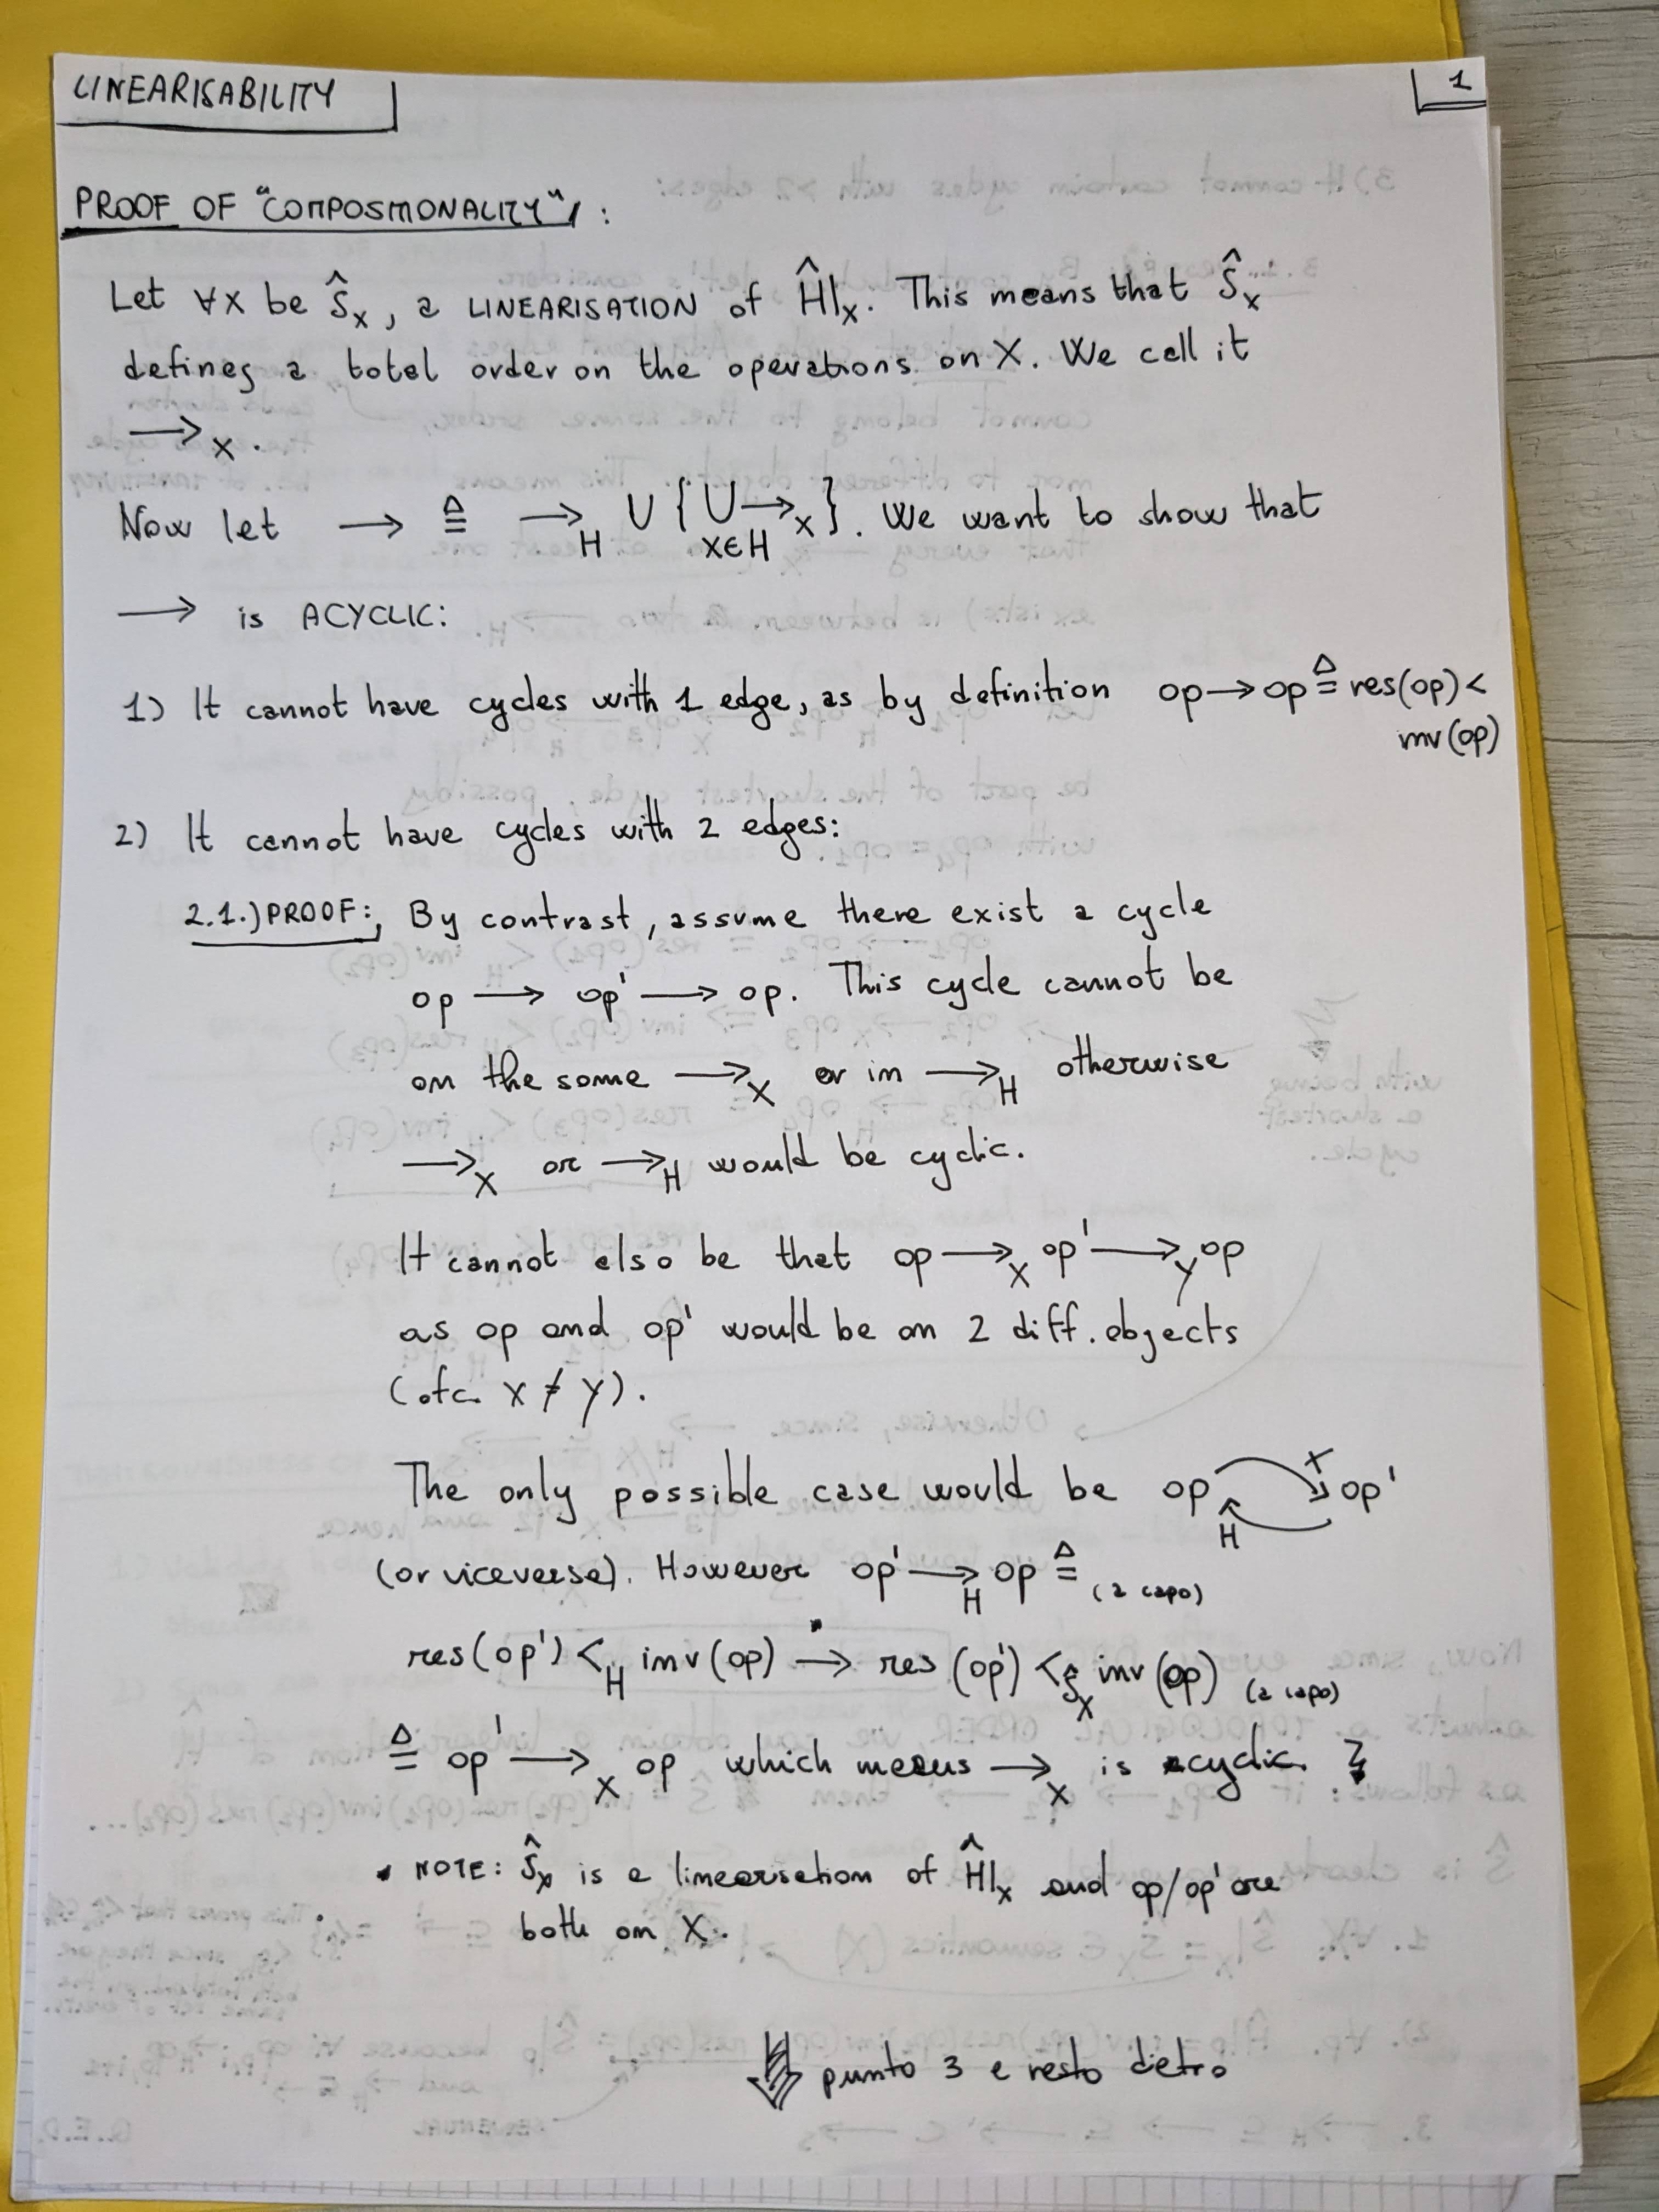 LINEARISABILITY
1
PROOF OF "COMPOSITIONALITY":
Let ∀X be Ŝ_X, a LINEARISATION of Ĥ|_X. This means that Ŝ_X
defines a total order on the operations on X. We call it
⟶_X.
Now let ⟶ ≜ ⟶_H ∪ {⋃_{X∈H} ⟶_X}. We want to show that
⟶ is ACYCLIC:
1) It cannot have cycles with 1 edge, as by definition op ⟶ op ≜ res(op) <
inv(op)
2) It cannot have cycles with 2 edges:
2.1.) PROOF: By contrast, assume there exist a cycle
op ⟶ op' ⟶ op. This cycle cannot be
on the same ⟶_X or in ⟶_H otherwise
⟶_X or ⟶_H would be cyclic.
It cannot also be that op ⟶_X op' ⟶_Y op
as op and op' would be on 2 diff. objects
(ofc. X ≠ Y).
The only possible case would be op X op'
H
(or viceversa). However op' ⟶_H op ≜ (a capo)
res(op') <_H inv(op) ⟶ res(op') <_{Ŝ_X} inv(op) (a capo)
≜ op' ⟶_X op which means ⟶_X is cyclic.
• NOTE: Ŝ_X is a linearisation of Ĥ|_X and op/op' are
both on X.
punto 3 e resto dietro